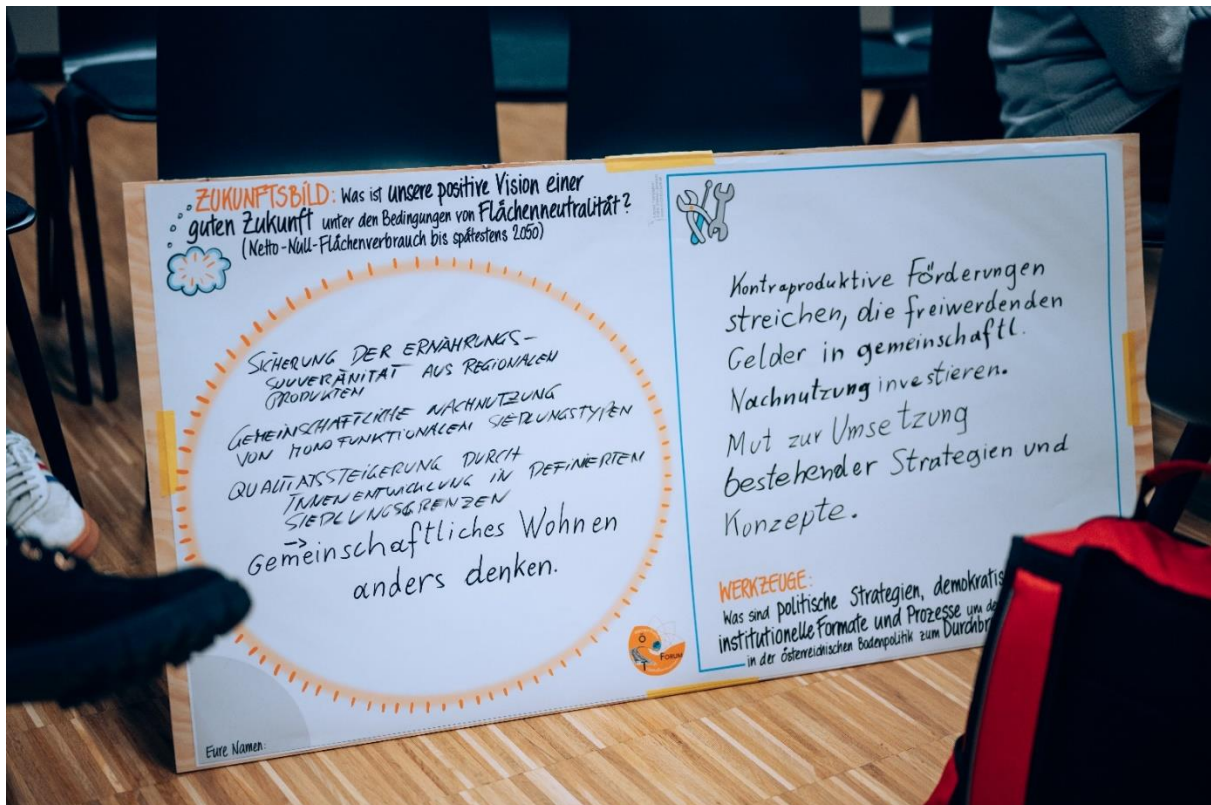 ZUKUNFTSBILD: Was ist unsere positive Vision einer
guten Zukunft unter den Bedingungen von Flächenneutralität?
(Netto-Null-Flächenverbrauch bis spätestens 2050)
SICHERUNG DER ERNÄHRUNGS-
SOUVERÄNITÄT AUS REGIONALEN
PRODUKTEN
GEMEINSCHAFTLICHE NACHNUTZUNG
VON MONOFUNKTIONALEN SIEDLUNGSTYPEN
QUALITÄTSSTEIGERUNG DURCH
INNENENTWICKLUNG IN DEFINIERTEN
SIEDLUNGSGRENZEN
->
Gemeinschaftliches Wohnen
anders denken.
Eure Namen:
FORUM
Kontraproduktive Förderungen
streichen, die freiwerdenden
Gelder in gemeinschaftl.
Nachnutzung investieren.
Mut zur Umsetzung
bestehender Strategien und
Konzepte.
WERKZEUGE:
Was sind politische Strategien, demokratis
institutionelle Formate und Prozesse um de
in der österreichischen Bodenpolitik zum Durchbr